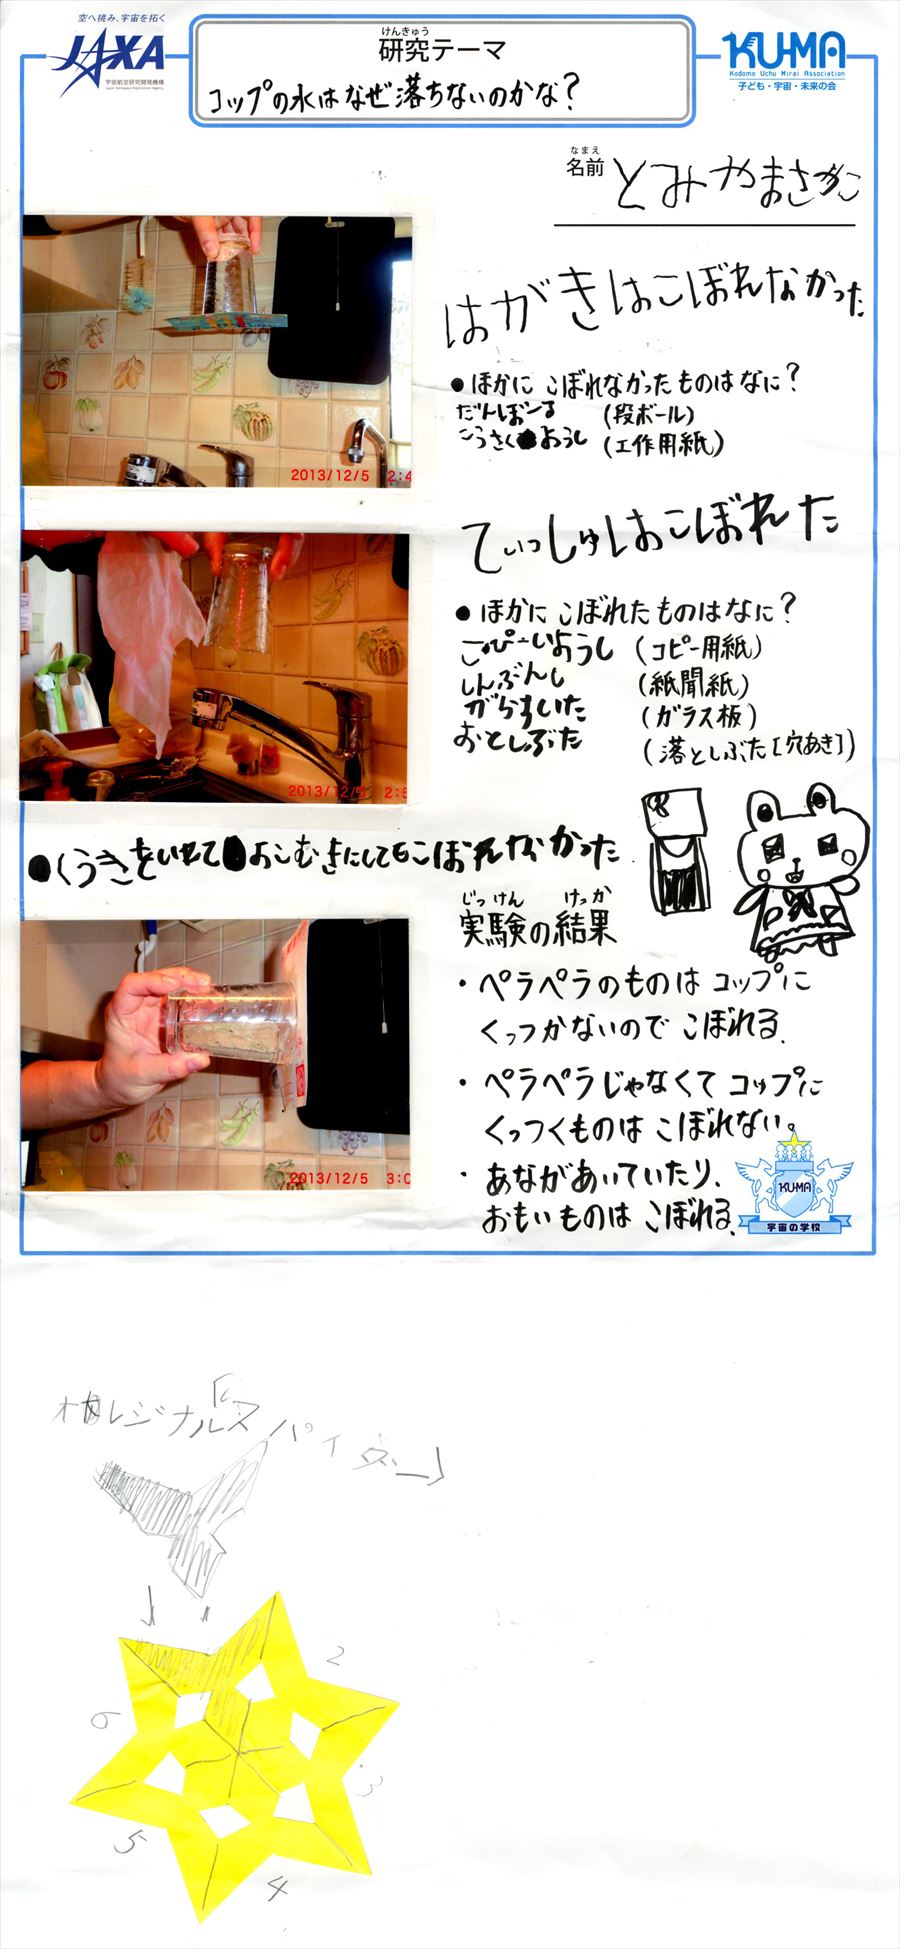 空へ挑み、宇宙を拓く
JAXA
宇宙航空研究開発機構
Japan Aerospace Exploration Agency
けんきゅう
研究テーマ
コップの水はなぜ落ちないのかな?
KU-MA
Kodomo Uchu Mirai Association
子ども・宇宙・未来の会
なまえ
名前 とみやまさかこ
はがきはこぼれなかった
●ほかに こぼれなかったものはなに?
だんぼーる (段ボール)
こうさくようし (工作用紙)
2013/12/5 2:4
てぃっしゅはこぼれた
●ほかに こぼれたものはなに?
こぴーようし (コピー用紙)
しんぶんし (紙聞紙)
がらすいた (ガラス板)
おとしぶた (落としぶた[穴あき])
2013/12/5 2:5
●くうきをいれてよこむきにしてもこぼれなかった
じっけん けっか
実験の結果
・ペラペラのものは コップに
くっつかないので こぼれる.
・ペラペラじゃなくて コップに
くっつくものは こぼれない。
・あながあいていたり、
おもいものは こぼれる.
2013/12/5 3:0
KU-MA
宇宙の学校
オリジナル「スパイダー」
2
3
4
5
6